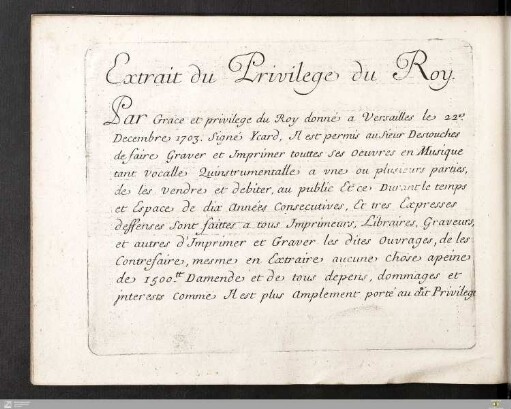 Extrait du Privilege du Roy.
Par Grace et privilege du Roy donné a Versailles le 22e.
Decembre 1703. Signé Ycard, Il est permis au Sieur Destouches
de faire Graver et Imprimer touttes ses Oeuvres en Musique
tant Vocalle Quinstrumentalle a vne ou plusieurs parties,
de les vendre et debiter, au public Et ce Durant le temps
et Espace de dix Années Consecutives, Et tres Expresses
deffenses Sont faittes a tous Imprimeurs, Libraires, Graveurs,
et autres d'Imprimer et Graver les dites Ouvrages, de les
Contrefaire, mesme en Extraire aucune chose apeine
de 1500.tt Damende et de tous depens, dommages et
jnterests Comme Il est plus Amplement porté au dit Privilege